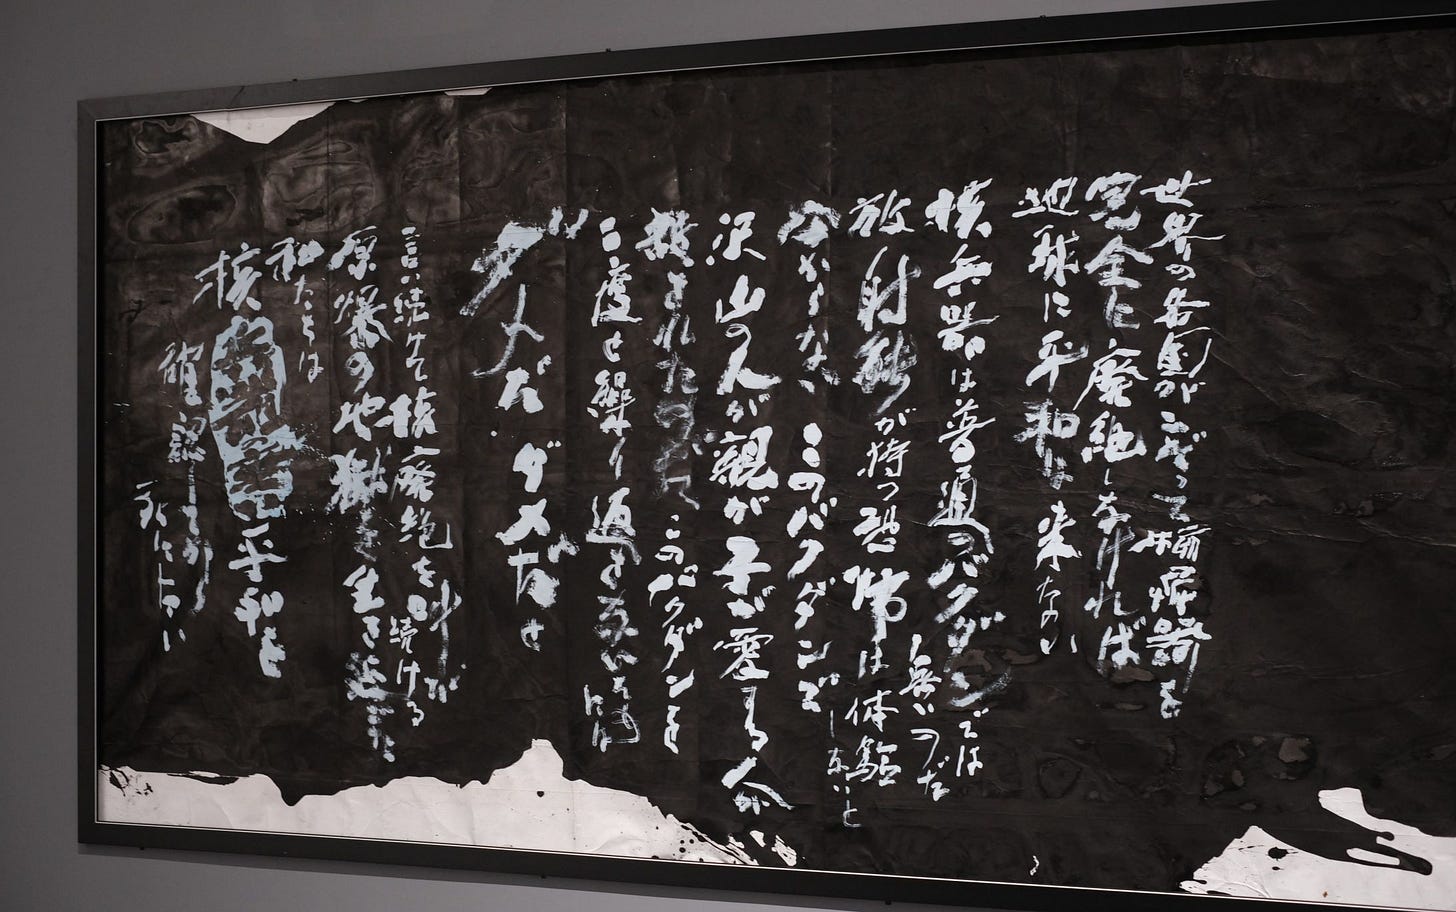 世界の各国がこぞって
完全に廃絶しなければ
地球に平和は来ない
核兵器は普通のバクダンでは
無いのだ
放射能が持つ恐怖は体験
しないと
分からない このバクダンで
沢山の人が親が子が愛する人が
殺されたのだ このバクダンを
二度と繰り返
ダメだ ダメだと
言い続けて核廃絶を叫び
続ける
原爆の地獄を生き延びた
私たちは
核 平和を
確認してから
死にたい